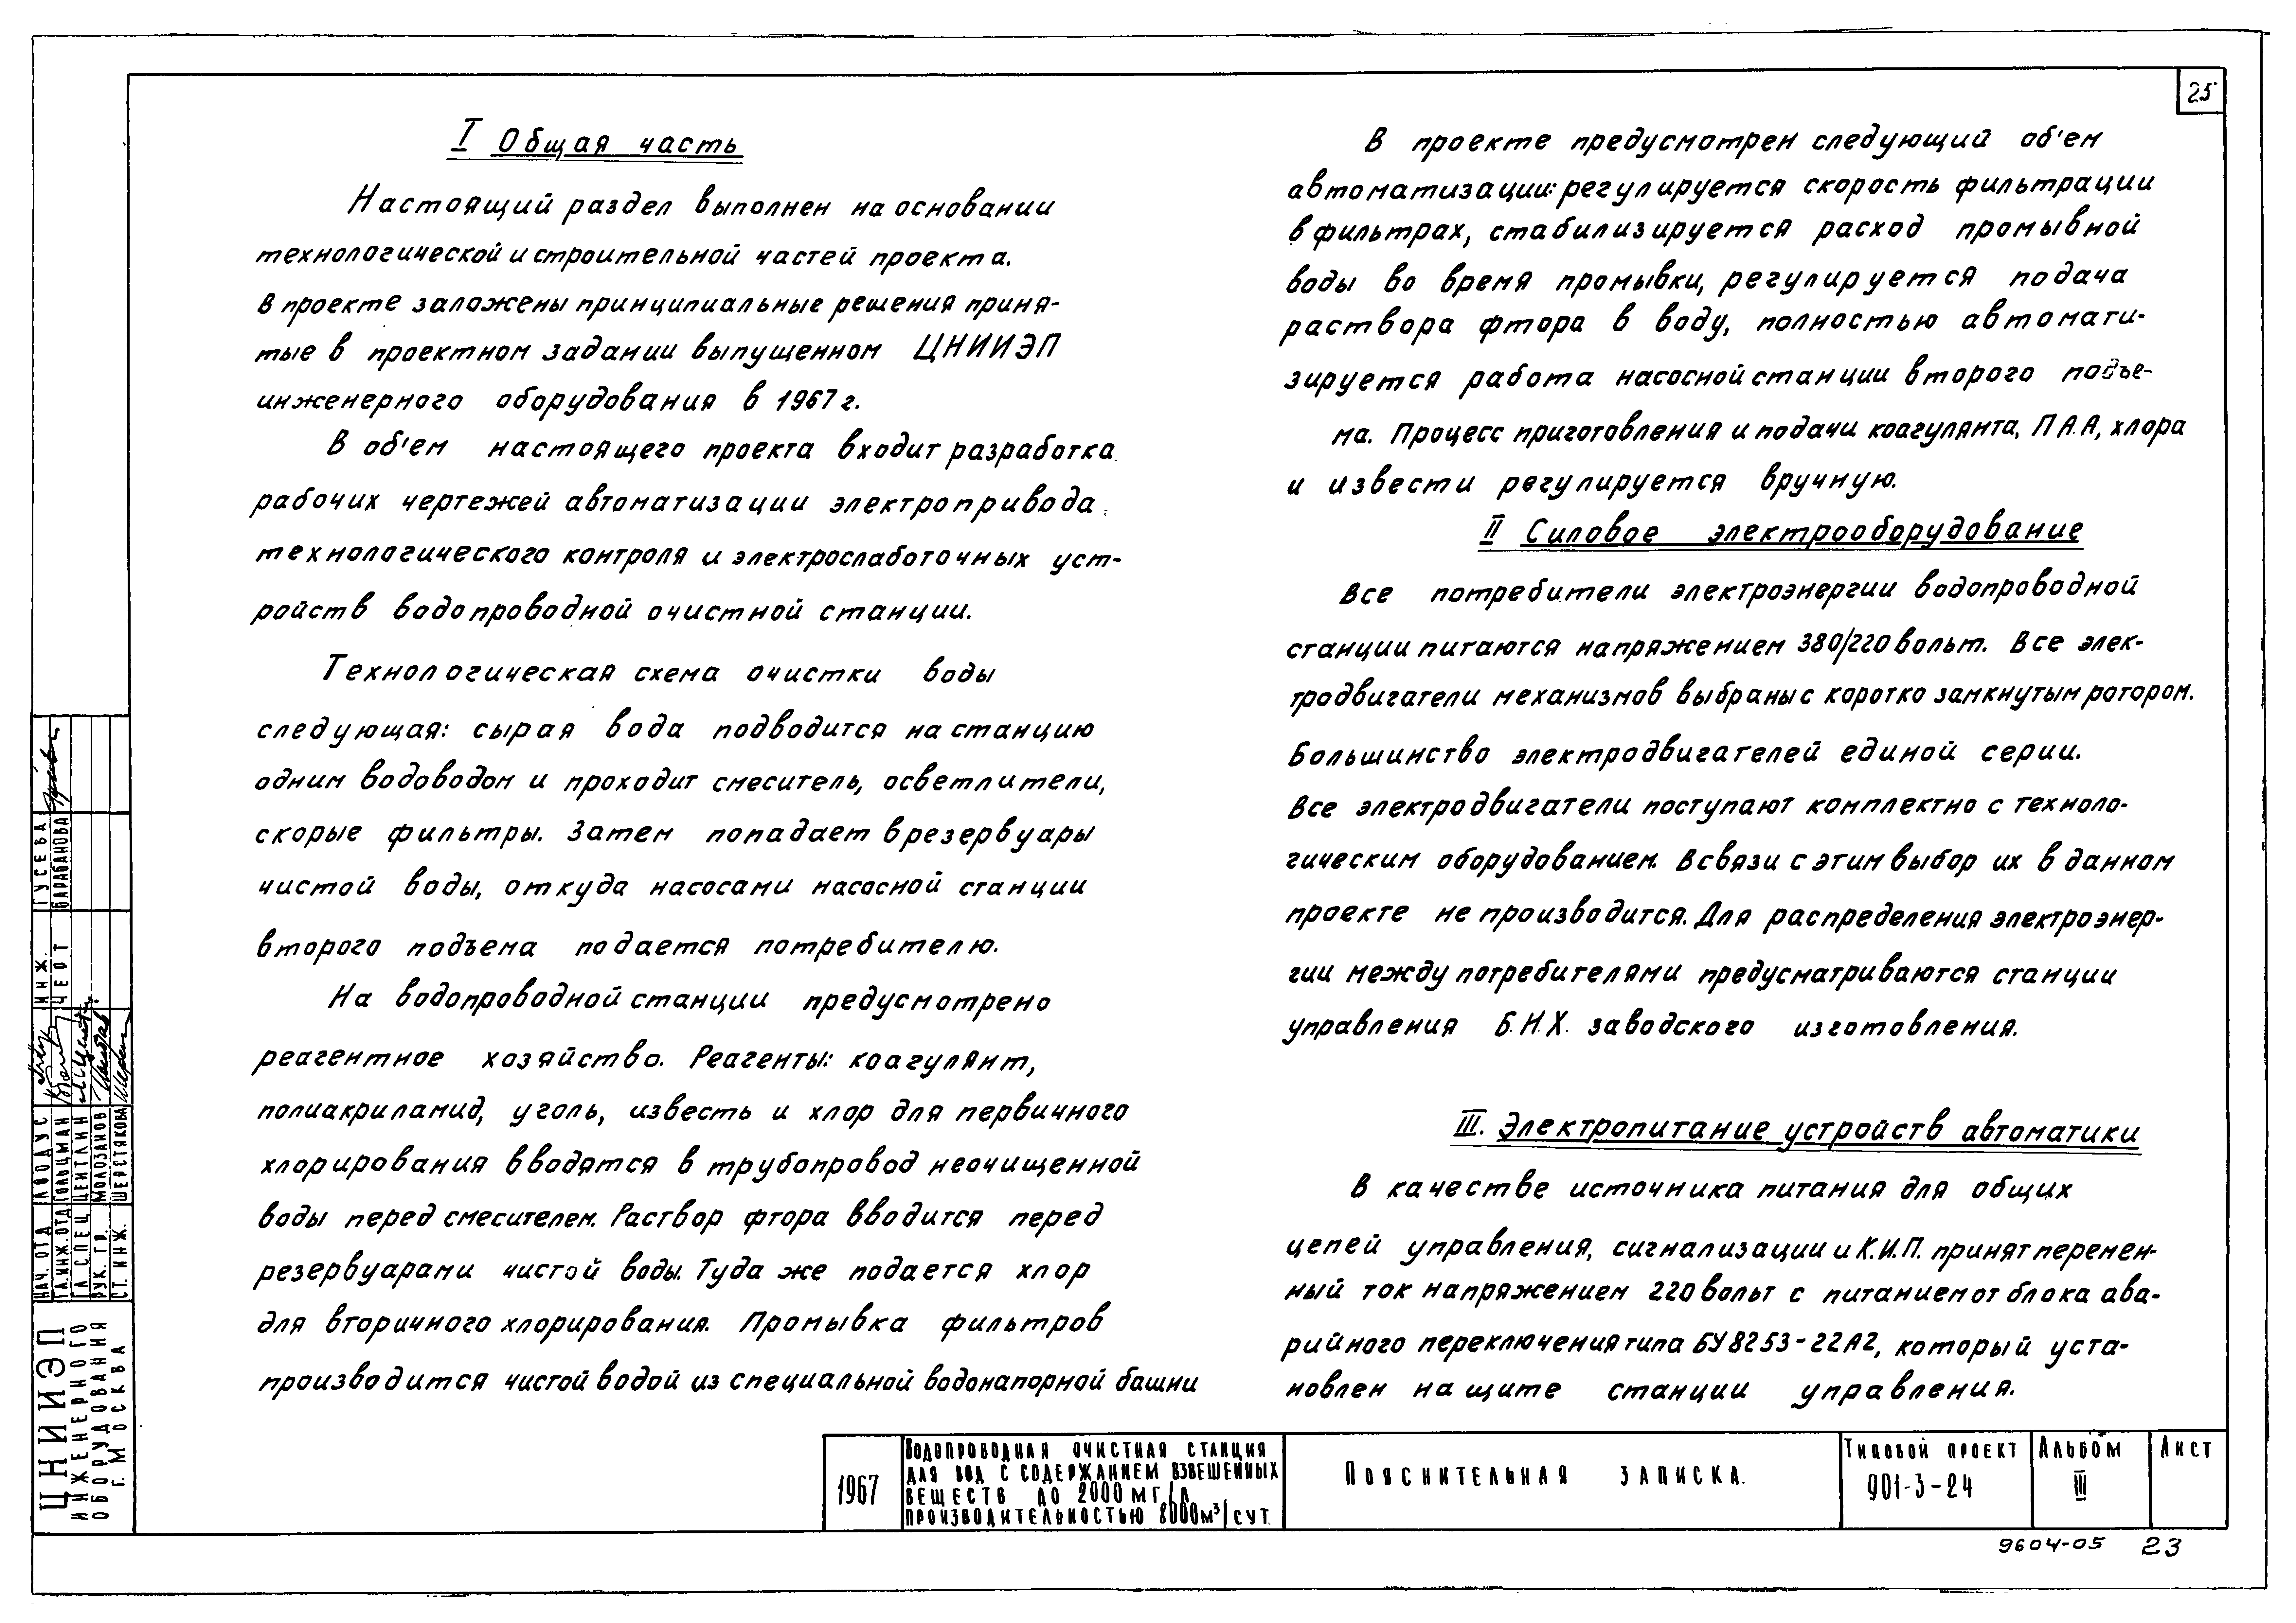 25
I Общая часть
Настоящий раздел выполнен на основании
технологической и строительной частей проекта.
В проекте заложены принципиальные решения приня-
тые в проектном задании выпущенном ЦНИИЭП
инженерного оборудования в 1967 г.
В об'ем настоящего проекта входит разработка
рабочих чертежей автоматизации электропривода
технологического контроля и электрослаботочных уст-
ройств водопроводной очистной станции.
Технологическая схема очистки воды
следующая: сырая вода подводится на станцию
одним водоводом и проходит смеситель, осветлители,
скорые фильтры. Затем попадает в резервуары
чистой воды, откуда насосами насосной станции
второго подъема подается потребителю.
На водопроводной станции предусмотрено
реагентное хозяйство. Реагенты: коагулянт,
полиакриламид, уголь, известь и хлор для первичного
хлорирования вводятся в трубопровод неочищенной
воды перед смесителем. Раствор фтора вводится перед
резервуарами чистой воды. Туда же подается хлор
для вторичного хлорирования. Промывка фильтров
производится чистой водой из специальной водонапорной башни
В проекте предусмотрен следующий об'ем
автоматизации: регулируется скорость фильтрации
в фильтрах, стабилизируется расход промывной
воды во время промывки, регулируется подача
раствора фтора в воду, полностью автомати-
зируется работа насосной станции второго подъе-
ма. Процесс приготовления и подачи коагулянта, П.А.А, хлора
и извести регулируется вручную.
II Силовое электрооборудование
Все потребители электроэнергии водопроводной
станции питаются напряжением 380/220 вольт. Все элек-
тродвигатели механизмов выбраны с коротко замкнутым ротором.
Большинство электродвигателей единой серии.
Все электродвигатели поступают комплектно с техноло-
гическим оборудованием. В связи с этим выбор их в данном
проекте не производится. Для распределения электроэнер-
гии между потребителями предусматриваются станции
управления Б.Н.Х. заводского изготовления.
III. Электропитание устройств автоматики
В качестве источника питания для общих
цепей управления, сигнализации и К.И.П. принят перемен-
ный ток напряжением 220 вольт с питанием от блока ава-
рийного переключения типа БУ8253-22А2, который уста-
новлен на щите станции управления.
ЦНИИЭП
ИНЖЕНЕРНОГО
ОБОРУДОВАНИЯ
Г. МОСКВА
НАЧ. ОТД ЛОДУС ИНЖ. ГУСЕВА
ГЛ.ИНЖ.ОТД ГОЛЬЦМАН ЧЕРТ БАРАБАНОВА
ГЛ СПЕЦ ЦЕТЛИН
РУК. ГР. МОЛОЗАНОВ
СТ. ИНЖ. ШЕРСТЯКОВА
1967
ВОДОПРОВОДНАЯ ОЧИСТНАЯ СТАНЦИЯ
ДЛЯ ВОД С СОДЕРЖАНИЕМ ВЗВЕШЕННЫХ
ВЕЩЕСТВ ДО 2000 МГ/Л
ПРОИЗВОДИТЕЛЬНОСТЬЮ 8000м³/СУТ.
ПОЯСНИТЕЛЬНАЯ ЗАПИСКА.
ТИПОВОЙ ПРОЕКТ
901-3-24
АЛЬБОМ
III
ЛИСТ
9604-05 23